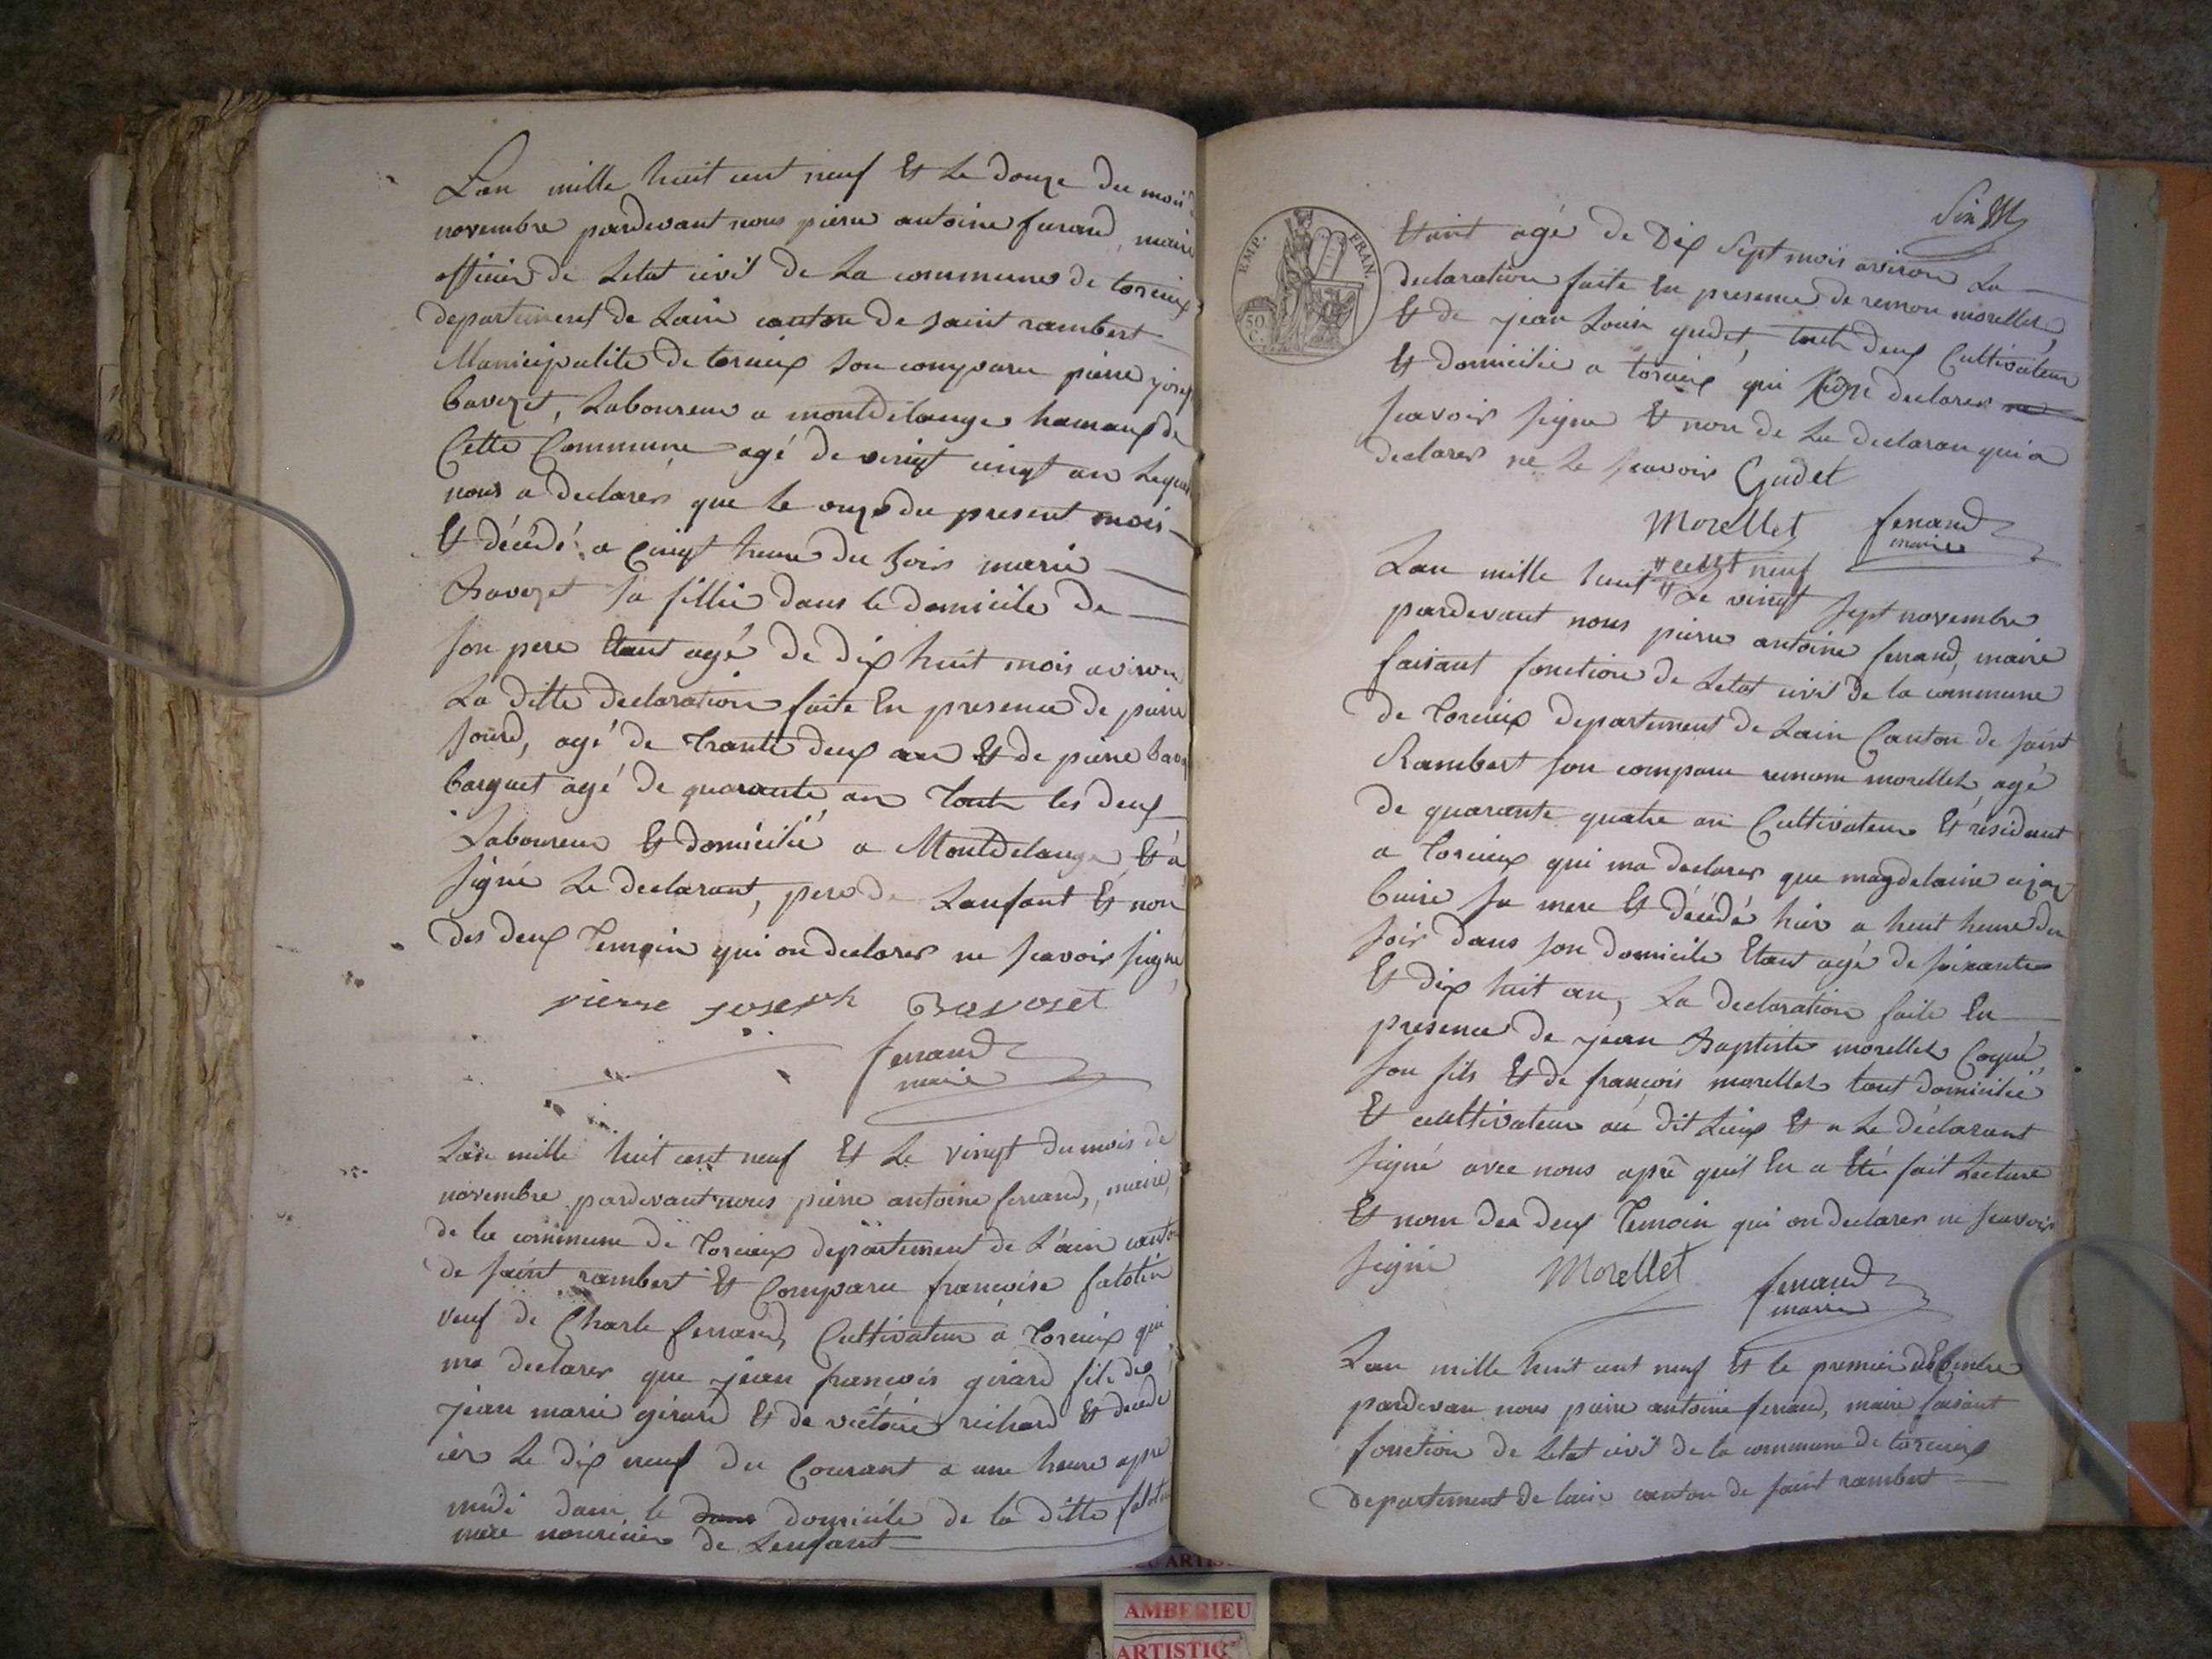 Lan mille huit cent neuf Et Le douze du mois
novembre pardevant nous pierre antoine ferrand, maire
officier de Letat civil de La commune de torcieux
departement de Lain canton de saint rambert
Municipalité de torcieux son comparu pierre josep
bavozet, Laboureur a montdelange hamaux de
Cette Commune agé de vingt cinqt an Lequel
nous a declarer que le onze du present mois
Et décédé a Cinqt heure du soir marie
Bavozet sa fillie dans le domicile de
son pere Etant agé de dix huit mois aviron
La ditte declaration faite En presence de pierre
sourd, agé de Trante deux an Et de pierre
barguet agé de quarante an Toute les deux
Laboureur Et domicilié a Montdelange Et a
signé Le declarant, pere de Lanfant Et non
des deux Temoin qui on declarer ne scavoir signe
pierre Joseph Bavoset
ferrand
maire
Lan mille huit cent neuf Et Le vingt du mois de
novembre pardevant nous pierre antoine ferrand, maire
de la commune de Torcieux departement de L'ain canton
de saint rambert Et Comparu francoise falotin
veuf de Charle ferrand, Cultivateur a Torcieux qui
ma declarer que jean francois girard fils de
jean marie girard Et de victoire richard Et decedé
ier Le dix neuf du Courant a une heure apre
midi dans le dans domicile de la ditte falotin
mere nouriciere de Lenfant
Etant agé de Dix Sept mois aviron La
declaration faite En presence de remon morellet,
Et de jean Louis gudet, tout deux Cultivateur
Et domicilie a torcieux qui on declarer ne
scavoir signe Et non de La declaran qui a
declarer ne Le scavoir Gudet
Morellet ferrand
maire
EMP. FRAN.
50 C.
Lan mille huit cent neuf Le vingt sept novembre
pardevant nous pierre antoine ferrand, maire
faisant fonction de Letat civil de la commune
de Torcieux departement de Lain Canton de saint
Rambert son comparu remom morellet, agé
de quarante quatre an Cultivateur Et résidant
a Torcieux qui ma declarer que magdelaine
buire sa mere Et décédé hier a huit heure du
soir dans son domicile Etant agé de soixante
Et dix huit an, La declaration faite En
presence de jean Baptiste morellet
son fils Et de françois morellet tout domicilié
Et cultivateur au dit Lieux Et a Le déclarant
signé avec nous apré quil En a Eté fait Lecture
Et nom des deux Temoin qui on declarer ne scavoir
signé Morellet ferrand
maire
Lan mille huit cent neuf Et le premier décembre
pardevan nous pierre antoine ferrand, maire faisant
fonction de Letat civil de la commune de torcieux
departement de lain canton de saint rambert
AMBERIEU
ARTISTIQ